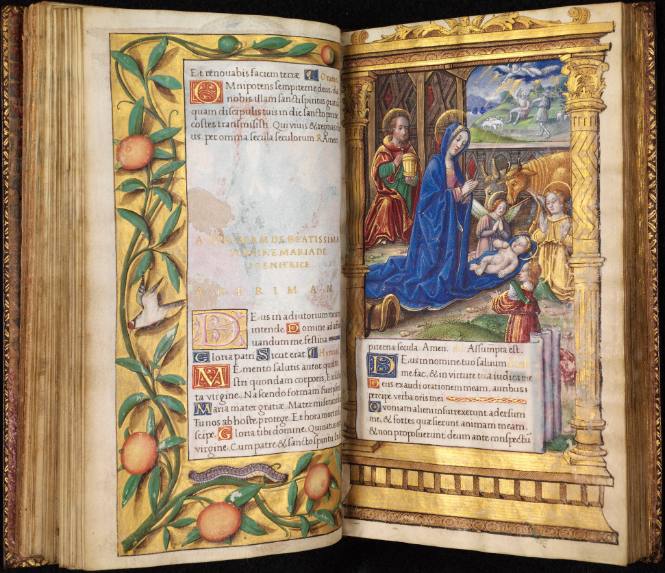 Et renouabis faciem terræ
Omnipotens sempiterne deus, da
nobis illam sancti spiritus gratiā
quam discipulis tuis in die sancto pente
costes transmisisti. Qui viuis & regnas
us. per omnia secula seculorum R Amen.
DE BEATISSIMA
VIRGINE MARIA DE
GENITRICE
AD PRIMAM
Deus in adiutorium meum
intende Domine ad adiu
uandum me festina
Gloria patri Sicut erat
Memento salutis autor quod no
stri quondam corporis, Ex
ta virgine Nascendo formam
Maria mater gratiæ, Mater misericor
Tu nos ab hoste protege, Et hora mortis
scipe. Gloria tibi domine, Qui natus es
virgine, Cum patre & sancto spiritu
piterna secula. Amen. Assumpta est.
Deus in nomine tuo saluum
me fac, & in virtute tua iudica me
Deus exaudi orationem meam, auribus
percipe verba oris mei
Quoniam alieni insurrexerunt aduersum
me, & fortes quæsierunt animam meam,
& non proposuerunt deum ante conspectū